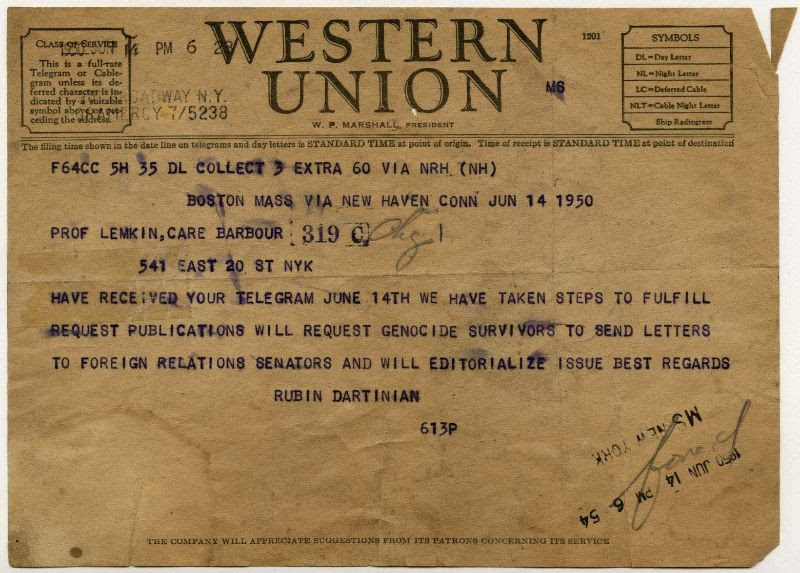 CLASS OF SERVICE
This is a full-rate
Telegram or Cable-
gram unless its de-
ferred character is in-
dicated by a suitable
symbol above or pre-
ceding the address.
1950 JUN 14 PM 6 28
BROADWAY N.Y.
GRAMERCY 7/5238
WESTERN
UNION
W. P. MARSHALL, PRESIDENT
1201
MS
SYMBOLS
DL=Day Letter
NL=Night Letter
LC=Deferred Cable
NLT=Cable Night Letter
Ship Radiogram
The filing time shown in the date line on telegrams and day letters is STANDARD TIME at point of origin. Time of receipt is STANDARD TIME at point of destination
F64CC 5H 35 DL COLLECT 3 EXTRA 60 VIA NRH (NH)
BOSTON MASS VIA NEW HAVEN CONN JUN 14 1950
PROF LEMKIN,CARE BARBOUR 319 C Chg
541 EAST 20 ST NYK
HAVE RECEIVED YOUR TELEGRAM JUNE 14TH WE HAVE TAKEN STEPS TO FULFILL
REQUEST PUBLICATIONS WILL REQUEST GENOCIDE SURVIVORS TO SEND LETTERS
TO FOREIGN RELATIONS SENATORS AND WILL EDITORIALIZE ISSUE BEST REGARDS
RUBIN DARTINIAN
613P
MS NEW YORK
1950 JUN 14 PM 6 54
THE COMPANY WILL APPRECIATE SUGGESTIONS FROM ITS PATRONS CONCERNING ITS SERVICE